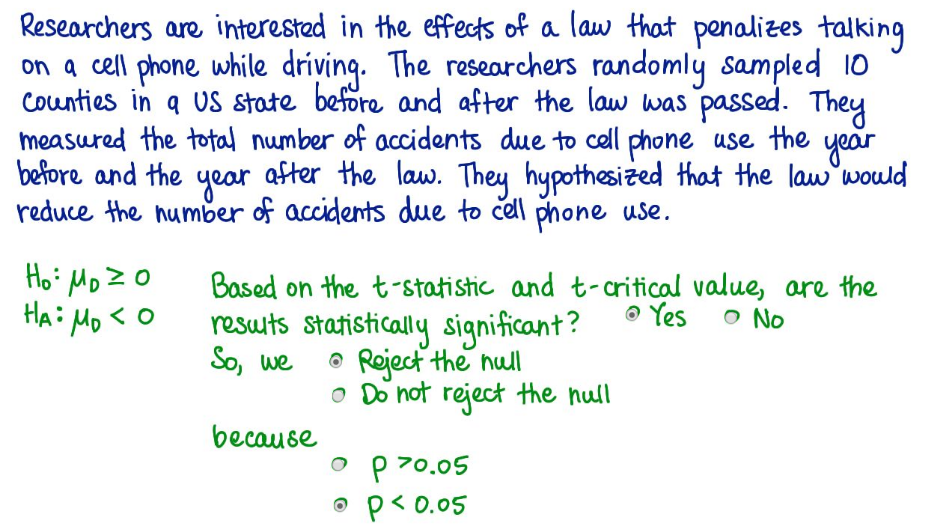 Researchers are interested in the effects of a law that penalizes talking
on a cell phone while driving. The researchers randomly sampled 10
counties in a US state before and after the law was passed. They
measured the total number of accidents due to cell phone use the year
before and the year after the law. They hypothesized that the law would
reduce the number of accidents due to cell phone use.
H₀: μ_D ≥ 0
H_A: μ_D < 0
Based on the t-statistic and t-critical value, are the
results statistically significant? Yes No
So, we Reject the null
Do not reject the null
because
p >0.05
p < 0.05